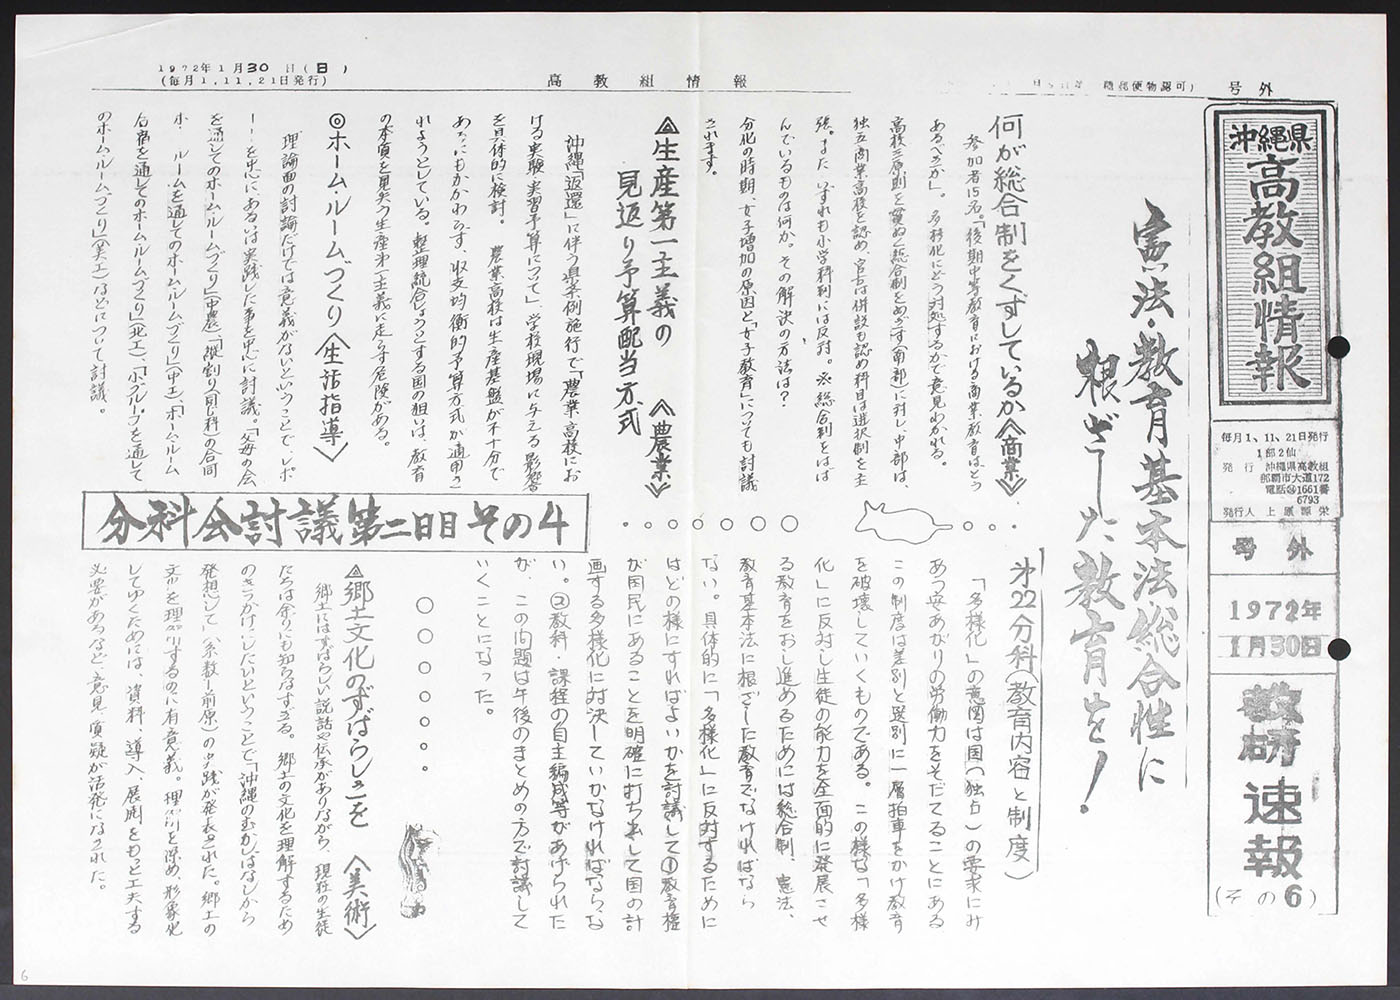 1972年1月30日(日)
(毎月1,11,21日発行)
高教組情報
号外
沖縄県
高教組情報
毎月1、11、21日発行
1部2仙
発行 沖縄県高教組
那覇市大道172
電話 1661番
6793
発行人 上原源栄
号外
1972年
1月30日
教研速報
(その6)
憲法・教育基本法総合性に
根ざした教育を!
何が総合制をくずしているか《商業》
参加者15名。「後期中等教育における商業教育はどう
あるべきか」。多様化にどう対処するかで意見わかれる。
高校三原則と総合制をめざす(南部)に対し、中部は、
独立商業高校を認め、官古は併設も認め科目は選択制を主
張。また、いずれも小学科制には反対。※総合制をはば
んでいるものは何か。その解決の方法は?
分化の時期、女子増加の原因と「女子教育」についても討議
されます。
◬生産第一主義の
見返り予算配当方式 《農業》
沖縄「返還」に伴う県条例施行で「農業高校にお
ける実験実習予算について」、学校現場に与える影響
を具体的に検討。 農業高校は生産基盤が不十分で
あるにもかかわらず、収支均衡的予算方式が適用さ
れようとしている。整理統合しようとする国の狙いは、教育
の本質を見失う生産第一主義に走らす危険がある。
◎ホームルームづくり 《生活指導》
理論面の討論だけでは意義がないということで、レポ
ートを中心にあるいは実践した事を中心に討議。「父母の会
を通してのホームルームづくり」(中農)、「縦割り(同じ科)の合同
ホームルームを通してのホームルームづくり」(中工)、「ホームルーム
合宿を通してのホームルームづくり」(北工)、「小グループを通して
のホームルームづくり」(美工)などについて討議。
分科会討議第二日目その4
第22分科(教育内容と制度)
「多様化」の意図は国(独占)の要求にみ
あう安あがりの労働力をそだてることにある
この制度は差別と選別に一層拍車をかけ教育
を破壊していくものである。この様な「多様
化」に反対し生徒の能力を全面的に発展させ
る教育をおし進めるためには総合制、憲法、
教育基本法に根ざした教育でなければなら
ない。具体的に「多様化」に反対するために
はどの様にすればよいかを討議して①教育権
が国民にあることを明確に打ち出して国の計
画する多様化に対決していかなければならな
い。②教科・課程の自主編成等があげられた
が、この問題は午後のまとめの方で討議して
いくことになった。
◬郷土文化のすばらしさを 《美術》
郷土にはすばらしい説話や伝承がありながら、現在の生徒
たちは余りにも知らなすぎる。郷土の文化を理解するため
のきっかけにしたいということで「沖縄のむかしばなしから
発想して」(糸数―前原)の実践が発表された。郷土の
文化を理解するのに有意義。理解を深め、形象化
してゆくためには、資料、導入、展開をもっと工夫する
必要があるなど、意見、質疑が活発になされた。
6